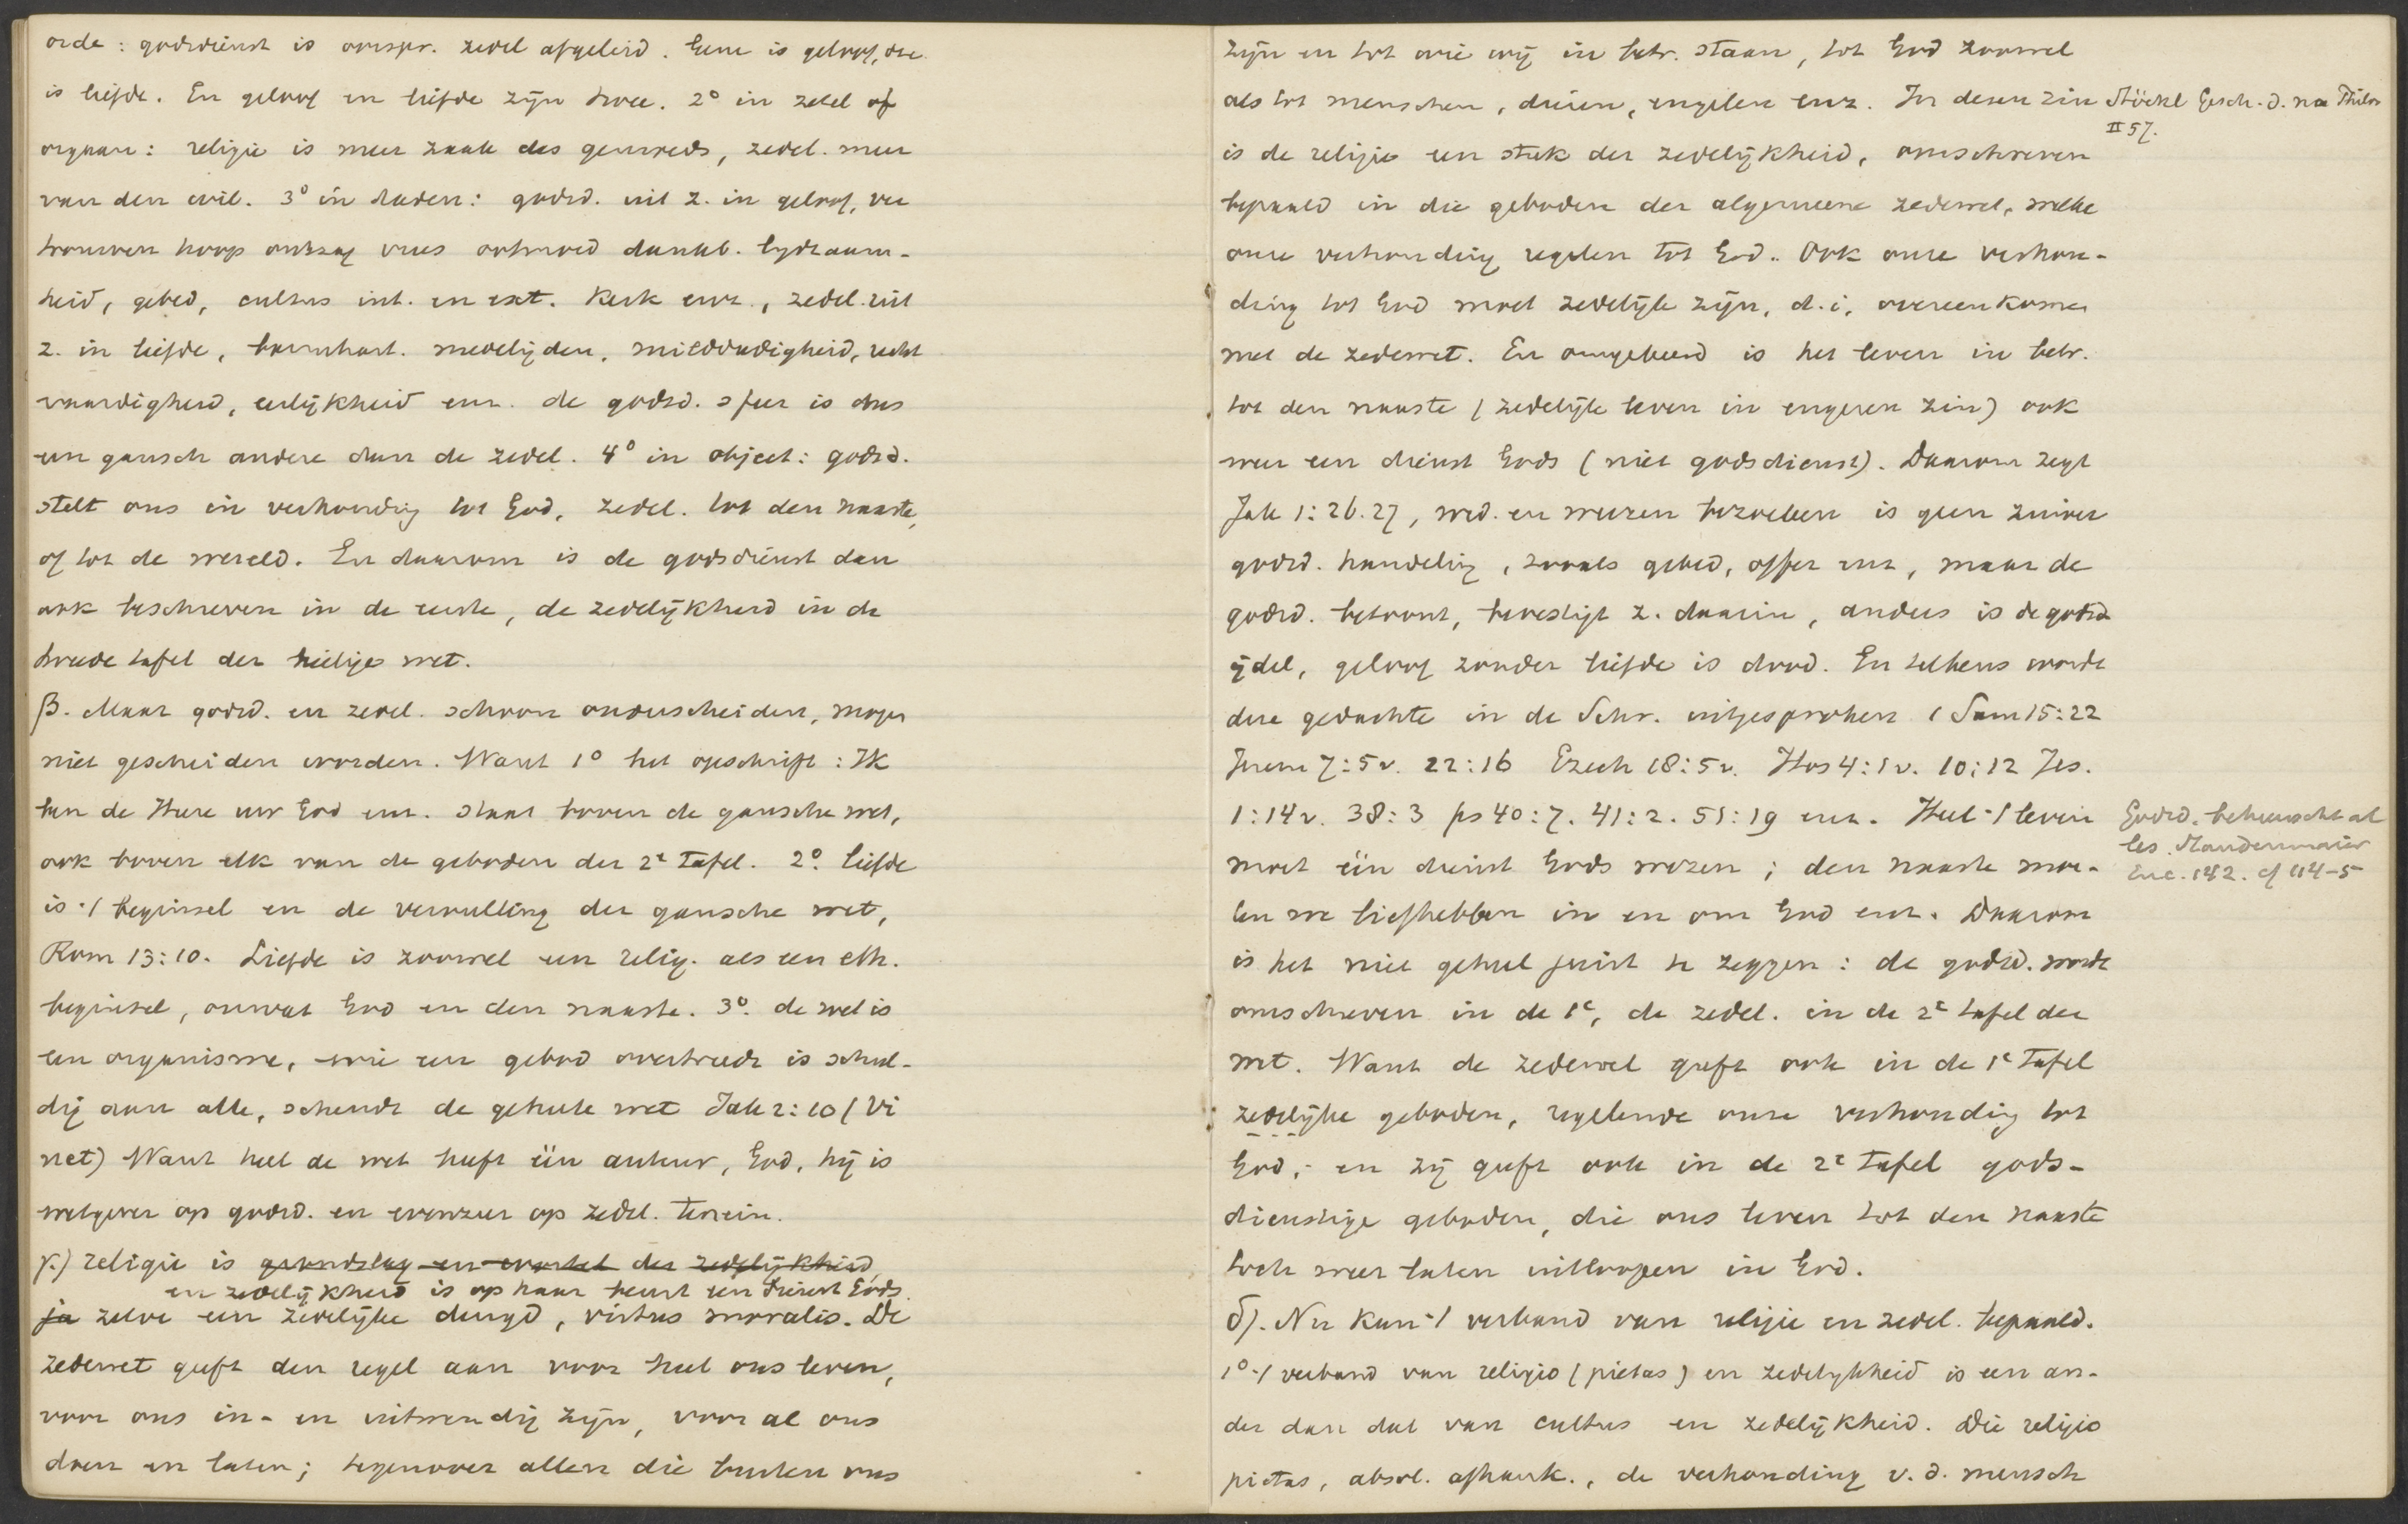 orde: godsdienst is oorspr. zedel afgeleid. Gene is geloof, deze
is liefde. En geloof en liefde zijn twee. 2° in zetel of
orgaan: religie is meer zaak des gemoeds, zedel. meer
van den wil. 3° in daden: godsd. uit z. in geloof, ver
trouwen hoop ontzag vrees ootmoed dankb. lydzaam-
heid, gebed, cultus int. en ext. Kerk enz., zedel. uit
z. in liefde, barmhart. medelijden, milddadigheid, recht
vaardigheid, eerlijkheid enz. de godsd. sfeer is dus
een gansch andere dan de zedel. 4° in object: godsd.
stelt ons in verhouding tot God, zedel. tot den naaste,
of tot de wereld. En daarom is de godsdienst dan
ook beschreven in de eerste, de zedelijkheid in de
tweede tafel der heilige wet.
β. Maar godsd. en zedel. schoon onderscheiden, mogen
niet gescheiden worden. Want 1° het opschrift: Ik
ben de Heere uw God enz. staat boven de gansche wet,
ook boven elk van de geboden der 2e tafel. 2°. liefde
is 't beginsel en de vervulling der gansche wet,
Rom 13:10. Liefde is zoowel een relig. als een eth.
beginsel, omvat God en den naaste. 3°. de wet is
een organisme, wie een gebod overtreedt is schul-
dig aan alle, schendt de geheele wet Jak 2:10 (Vi
net) Want heel de wet heeft één auteur, God, hij is
wetgever op godsd. en evenzeer op zedel. terrein.
γ.) religie is grondslag en wortel der zedelijkheid,
en zedelijkheid is op haar beurt een dienst Gods.
ja zelve een zedelijke deugd, virtus moralis. De
zedewet geeft den regel aan voor heel ons leven,
voor ons in- en uitwendig zijn, voor al ons
doen en laten; tegenover allen die buiten ons
zijn en tot wie wij in betr. staan, tot God zoowel
als tot menschen, dieren, engelen enz. In dezen zin
Stöckl Gesch. d. neu Philos
II 57.
is de religie een stuk der zedelijkheid, omschreven
bepaald in die geboden der algemeene zedewet, welke
onze verhouding regelen tot God. Ook onze verhou-
ding tot God moet zedelijk zijn, d.i. overeenkomen
met de zedewet. En omgekeerd is het leven in betr.
tot den naaste (zedelijk leven in engeren zin) ook
weer een dienst Gods (niet godsdienst). Daarom zegt
Jak 1:26.27, wed. en weezen bezoeken is geen zuiver
godsd. handeling, zooals gebed, offer enz, maar de
godsd. betoont, bevestigt z. daarin, anders is de godsd
ijdel, geloof zonder liefde is dood. En telkens wordt
deze gedachte in de Schr. uitgesproken 1 Sam 15:22
Jerem 7:5v. 22:16 Ezech 18:5v. Hos 4:1v. 10:12 Jes.
1:14v. 38:3 ps 40:7. 41:2. 51:19 enz. Heel 't leven
Godsd. beheerscht al
les. Staudenmaier
Enc. 142. cf 114-5
moet één dienst Gods wezen; den naaste moe-
ten we liefhebben in en om God enz. Daarom
is het niet geheel juist te zeggen: de godsd. wordt
omschreven in de 1e, de zedel. in de 2e tafel der
wet. Want de zedewet geeft ook in de 1e tafel
zedelijke geboden, regelende onze verhouding tot
God; en zij geeft ook in de 2e tafel gods-
dienstige geboden, die ons leven tot den naaste
toch weer laten uitloopen in God.
δ). Nu kan 't verband van religie en zedel. bepaald.
1° 't verband van religio (pietas) en zedelykheid is een an-
der dan dat van cultus en zedelijkheid. Die religio
pietas, absol. afhank., de verhouding v. d. mensch